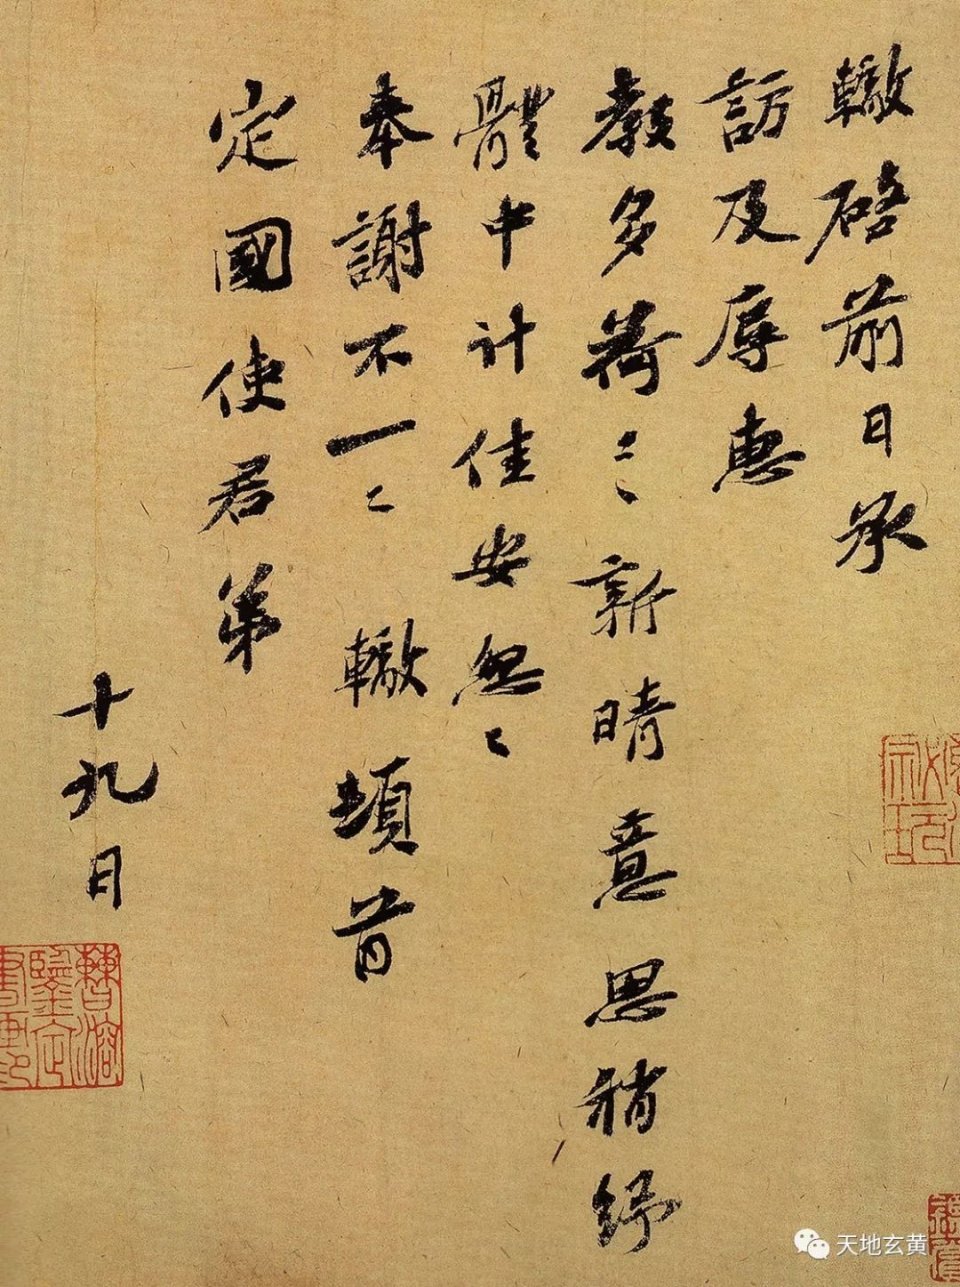 轍啓前日承
訪及辱惠
教多荷〻〻新晴意思稍紓
體中計佳安怱〻
奉謝不一〻轍頓首
定國使君弟
十九日
天地玄黄